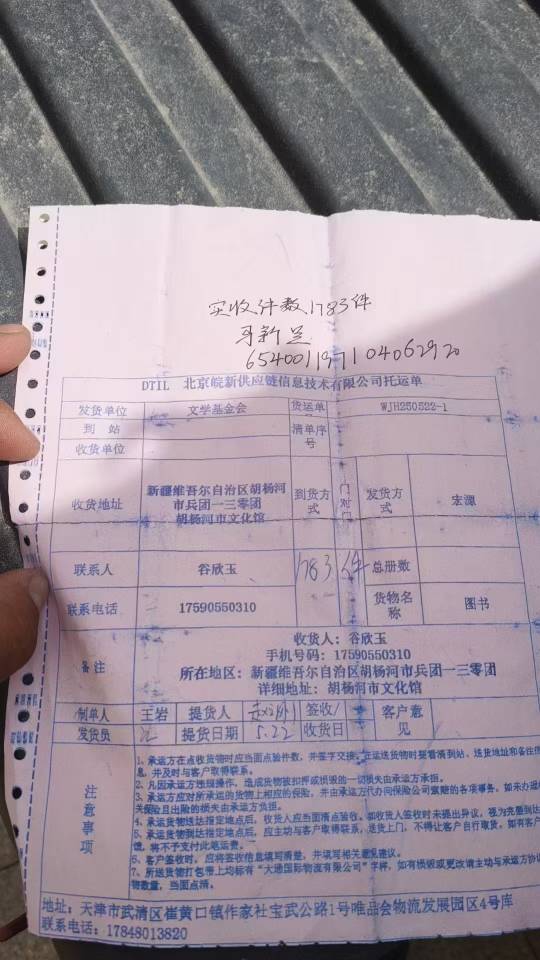 实收件数1783件
DTIL 北京皖新供应链信息技术有限公司托运单
发货单位 文学基金会 货运单 WJH250522-1
到 站 清单序号
收货单位
收货地址 新疆维吾尔自治区胡杨河市兵团一三零团胡杨河市文化馆 到货方式 门对门 发货方式 宏源
联系人 谷欣玉 1783件 总册数
联系电话 17590550310 货物名称 图书
备注
收货人：谷欣玉
手机号码：17590550310
所在地区：新疆维吾尔自治区胡杨河市兵团一三零团
详细地址：胡杨河市文化馆
制单人 王岩 提货人 签收/ 客户意见
发货员 提货日期 5.22 收货日
注意事项
1、承运方在点收货物时应当面点验件数，并签字交接，在运送货物时要看清到站、送货地址和备注信
息，并及时与客户取得联系。
2、凡因承运方违规操作，造成货物被扣押或损毁的一切损失由承运方承担。
3、承运方应对所承运的货物上相应的保险，并由承运方代办向保险公司索赔的各项事务，如未办理相
关保险且出险的损失由承运方负担。
4、承运货物送达指定地点后，收货人应当面清点验收，如收货人签收时未提出异议，视为完整到达
5、承运货物到达指定地点后，应主动与客户取得联系，送货上门，不得让客户自行取货，如有客户
馈，将不予支付此笔运费。
6、客户签收时，应将签收信息填写清楚，并填写相关意见建议。
7、所送货物打包带上均标有“大通国际物流有限公司”字样，如有损毁或更改请主动与承运方协议
物数量，当面点清。
地址：天津市武清区崔黄口镇作家社宝武公路1号唯品会物流发展园区4号库
联系电话：17848013820